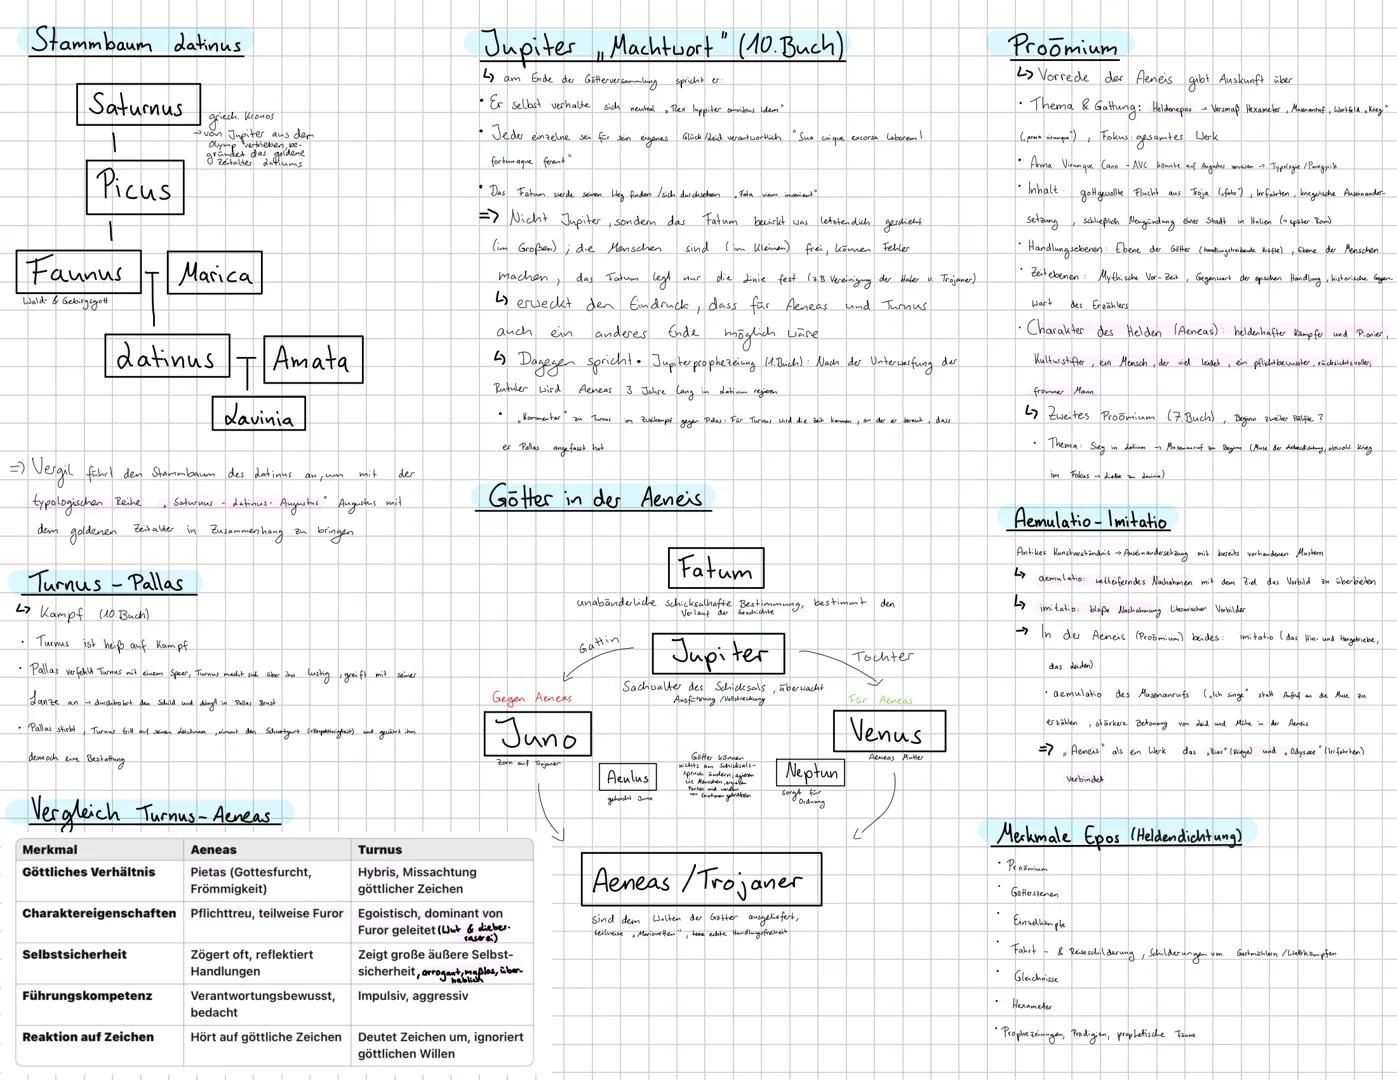 Stammbaum Latinus
Saturnus
griech. Kronos
→ von Jupiter aus dem
Olymp vertrieben, be-
gründet das goldene
Zeitalter Latiums
Picus
Faunus
Marica
Wald- & Gebirgsgott
Latinus
Amata
Lavinia
=> Vergil führt den Stammbaum des Latinus an, um mit der
typologischen Reihe „Saturnus - Latinus - Augustus" Augustus mit
dem goldenen Zeitalter in Zusammenhang zu bringen
Turnus - Pallas
↳ Kampf (10. Buch)
• Turnus ist heiß auf Kampf
• Pallas verfehlt Turnus mit einem Speer, Turnus macht sich über ihn lustig, greift mit seiner
Lanze an → durchbohrt den Schild und dringt in Pallas Brust
• Pallas stirbt, Turnus tritt auf seinen Leichnam, nimmt den Schwertgurt und gewährt ihm
dennoch eine Bestattung
Vergleich Turnus - Aeneas
Merkmal Aeneas Turnus
Göttliches Verhältnis Pietas (Gottesfurcht, Hybris, Missachtung
Frömmigkeit) göttlicher Zeichen
Charaktereigenschaften Pflichttreu, teilweise Furor Egoistisch, dominant von
Furor geleitet (Wut & Liebes-
raserei)
Selbstsicherheit Zögert oft, reflektiert Zeigt große äußere Selbst-
Handlungen sicherheit, arrogant, maßlos, über-
heblich
Führungskompetenz Verantwortungsbewusst, Impulsiv, aggressiv
bedacht
Reaktion auf Zeichen Hört auf göttliche Zeichen Deutet Zeichen um, ignoriert
göttlichen Willen
Jupiter „Machtwort" (10. Buch)
↳ am Ende der Götterversammlung spricht er:
• Er selbst verhalte sich neutral „Rex Iuppiter omnibus idem"
• Jeder einzelne sei für sein eigenes Glück/Leid verantwortlich "Sua cuique exorsa laborem
fortunaque ferent"
• Das Fatum werde seinen Weg finden /sich durchsetzen „Fata viam invenient"
=> Nicht Jupiter, sondern das Fatum bewirkt was letztendlich geschieht
(im Großen); die Menschen sind (im Kleinen) frei, können Fehler
machen, das Fatum legt nur die Linie fest (z.B Vereinigung der Italer u. Trojaner)
↳ erweckt den Eindruck, dass für Aeneas und Turnus
auch ein anderes Ende möglich wäre
↳ Dagegen spricht • Jupiterprophezeiung (1. Buch): Nach der Unterwerfung der
Rutuler wird Aeneas 3 Jahre lang in Latium regieren
• „Kommentar" zu Turnus im Zweikampf gegen Pallas: Für Turnus wird die Zeit kommen, an der er bereut, dass
er Pallas angefasst hat
Götter in der Aeneis
Fatum
unabänderliche schicksalhafte Bestimmung, bestimmt den
Verlauf der Geschichte
Gattin
Jupiter
Tochter
Sachwalter des Schicksals, überwacht
Ausführung /Vollstreckung
Gegen Aeneas
Für Aeneas
Juno
Venus
Zorn auf Trojaner
Aeneas Mutter
Aeolus
gehorcht Juno
Götter können
nichts am Schicksals-
spruch ändern, agieren
wie Menschen, ergreifen
Partei und werden
von Emotionen getrieben
Neptun
sorgt für
Ordnung
Aeneas /Trojaner
sind dem Walten der Götter ausgeliefert,
teilweise „Marionetten", keine echte Handlungsfreiheit
Proömium
↳ Vorrede der Aeneis gibt Auskunft über
• Thema & Gattung: Heldenepos → Versmaß Hexameter, Musenanruf, Wortfeld „Krieg"
(„arma virumque"), Fokus: gesamtes Werk
• Arma Virumque Cano - AVC könnte auf Augustus verweisen → Typologie/Panegyrik
• Inhalt: gottgewollte Flucht aus Troja („fato"), Irrfahrten, kriegerische Auseinander-
setzung, schließlich Neugründung einer Stadt in Italien (→ später Rom)
• Handlungsebenen: Ebene der Götter (handlungstreibende Kräfte), Ebene der Menschen
• Zeitebenen: Mythische Vor-Zeit, Gegenwart der epischen Handlung, historische Gegen-
wart des Erzählers
• Charakter des Helden (Aeneas): heldenhafter Kämpfer und Pionier,
Kulturstifter, ein Mensch, der viel leidet, ein pflichtbewusster, rücksichtsvoller,
frommer Mann
↳ Zweites Proömium (7. Buch), Beginn zweiter Hälfte?
• Thema: Sieg in Latium → Musenanruf zu Beginn (Muse der Liebesdichtung, obwohl Krieg
im Fokus → Liebe zu Lavinia)
Aemulatio - Imitatio
Antikes Kunstverständnis → Auseinandersetzung mit bereits vorhandenen Mustern
↳ aemulatio: wetteiferndes Nachahmen mit dem Ziel das Vorbild zu überbieten
↳ imitatio: bloße Nachahmung literarischer Vorbilder
→ In der Aeneis (Proömium) beides: imitatio (das Hin- und Hergetriebe,
das Leiden)
• aemulatio des Musenanrufs („Ich singe" statt Aufruf an die Muse zu
erzählen, stärkere Betonung von Leid und Mühe in der Aeneis
=> „Aeneis" als ein Werk das „Ilias" (Kriege) und „Odyssee" (Irrfahrten)
verbindet
Merkmale Epos (Heldendichtung)
• Proömium
• Götterszenen
• Einzelkämpfe
• Fahrt - & Reiseschilderung, Schilderungen von Gastmählern /Wettkämpfen
• Gleichnisse
• Hexameter
• Prophezeiungen, Prodigien, prophetische Träume